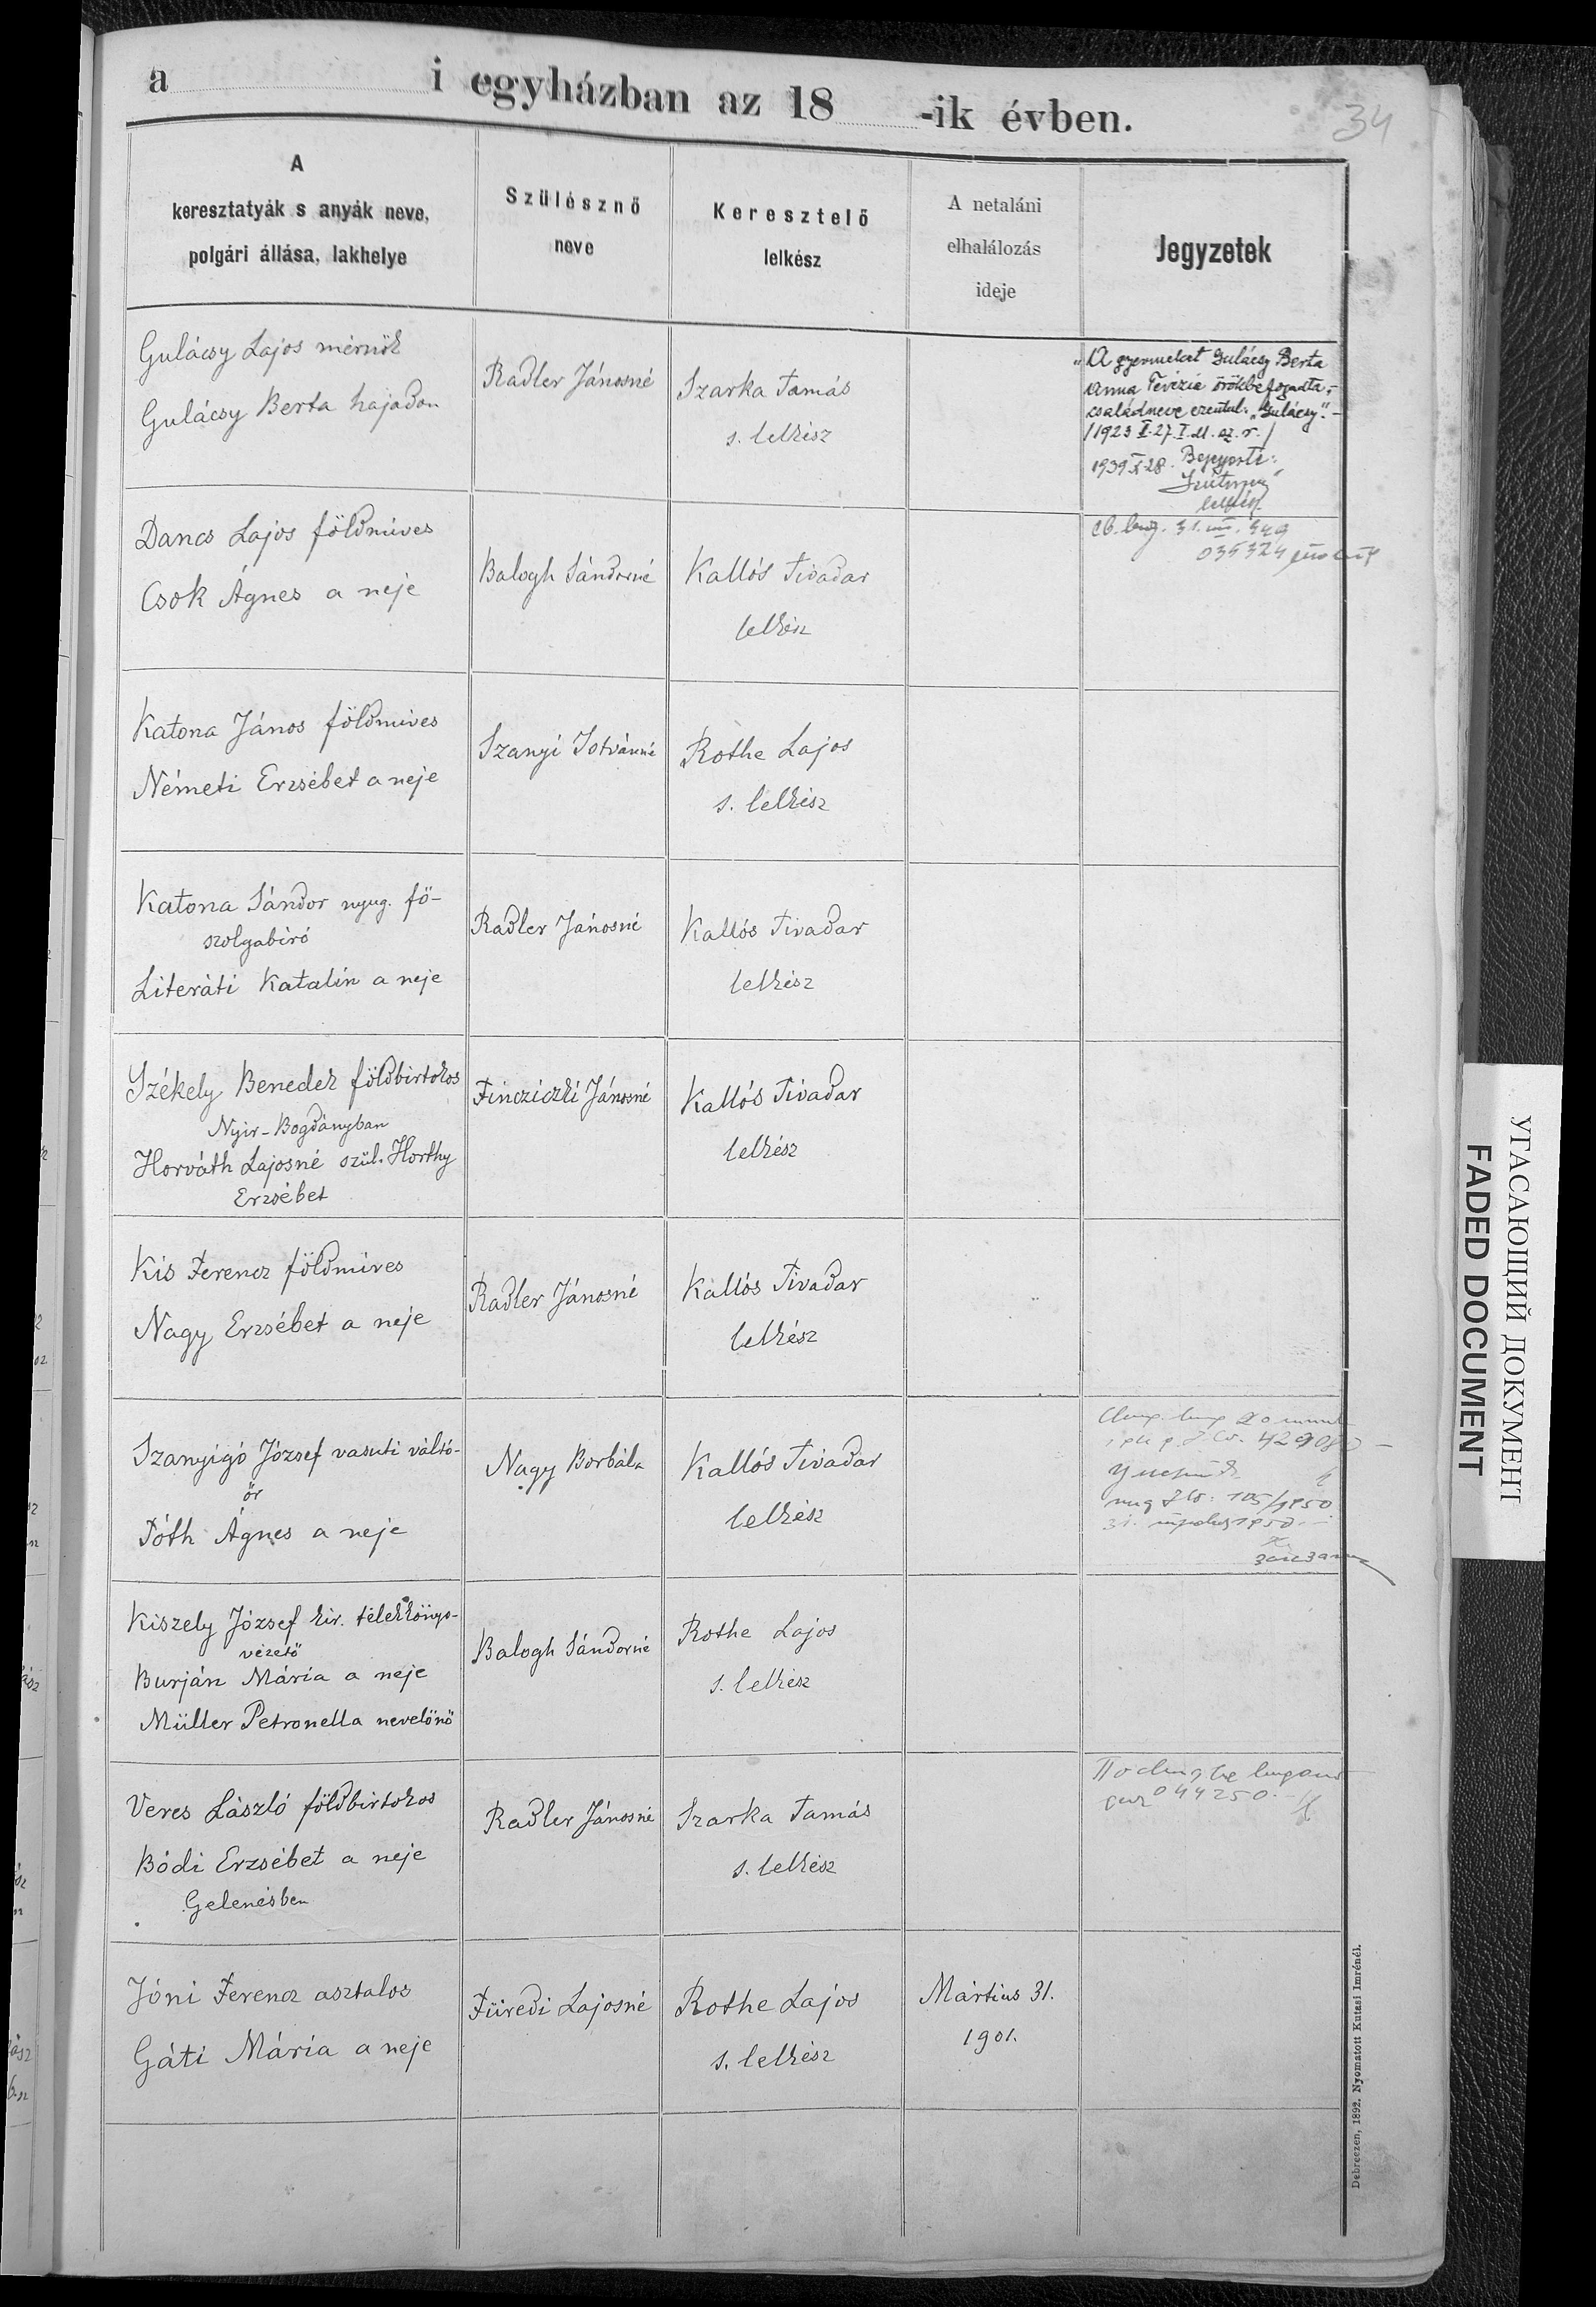 a i egyházban az 18 -ik évben.
34
A
keresztatyák s anyák neve,
polgári állása, lakhelye
Szülésznő
neve
Keresztelő
lelkész
A netaláni
elhalálozás
ideje
Jegyzetek
Gulácsy Lajos mérnök
Gulácsy Berta hajadon
Radler Jánosné
Szarka Tamás
s. lelkész
"A gyermeket Gulácsy Berta
Anna Terézia örökbefogadta;
családneve ezentul: "Gulácsy".-
1939 X. 28. Bejegyezte:
lelkész
Dancs Lajos földmives
Csok Ágnes a neje
Balogh Sándorné
Kallós Tivadar
lelkész
035324
Katona János földmives
Németi Erzsébet a neje
Szanyi Istvánné
Rothe Lajos
s. lelkész
Katona Sándor nyug. fő-
szolgabiró
Literáti Katalin a neje
Radler Jánosné
Kallós Tivadar
lelkész
Székely Benedek földbirtokos
Nyir-Bogdányban
Horváth Lajosné szül. Horthy
Erzsébet
Fincziczki Jánosné
Kallós Tivadar
lelkész
Kis Ferencz földmives
Nagy Erzsébet a neje
Radler Jánosné
Kallós Tivadar
lelkész
Szanyigó József vasuti váltó-
őr
Tóth Ágnes a neje
Nagy Borbála
Kallós Tivadar
lelkész
105/1950
Kiszely József kir. telekkönyv-
vezető
Burján Mária a neje
Müller Petronella nevelőnő
Balogh Sándorné
Rothe Lajos
s. lelkész
Veres László földbirtokos
Bódi Erzsébet a neje
Gelenésben
Radler Jánosné
Szarka Tamás
s. lelkész
044250.
Jóni Ferencz asztalos
Gáti Mária a neje
Füredi Lajosné
Rothe Lajos
s. lelkész
Mártius 31.
1901.
Debreczen, 1892. Nyomatott Kutasi Imrénél.
УГАСАЮЩИЙ ДОКУМЕНТ
FADED DOCUMENT